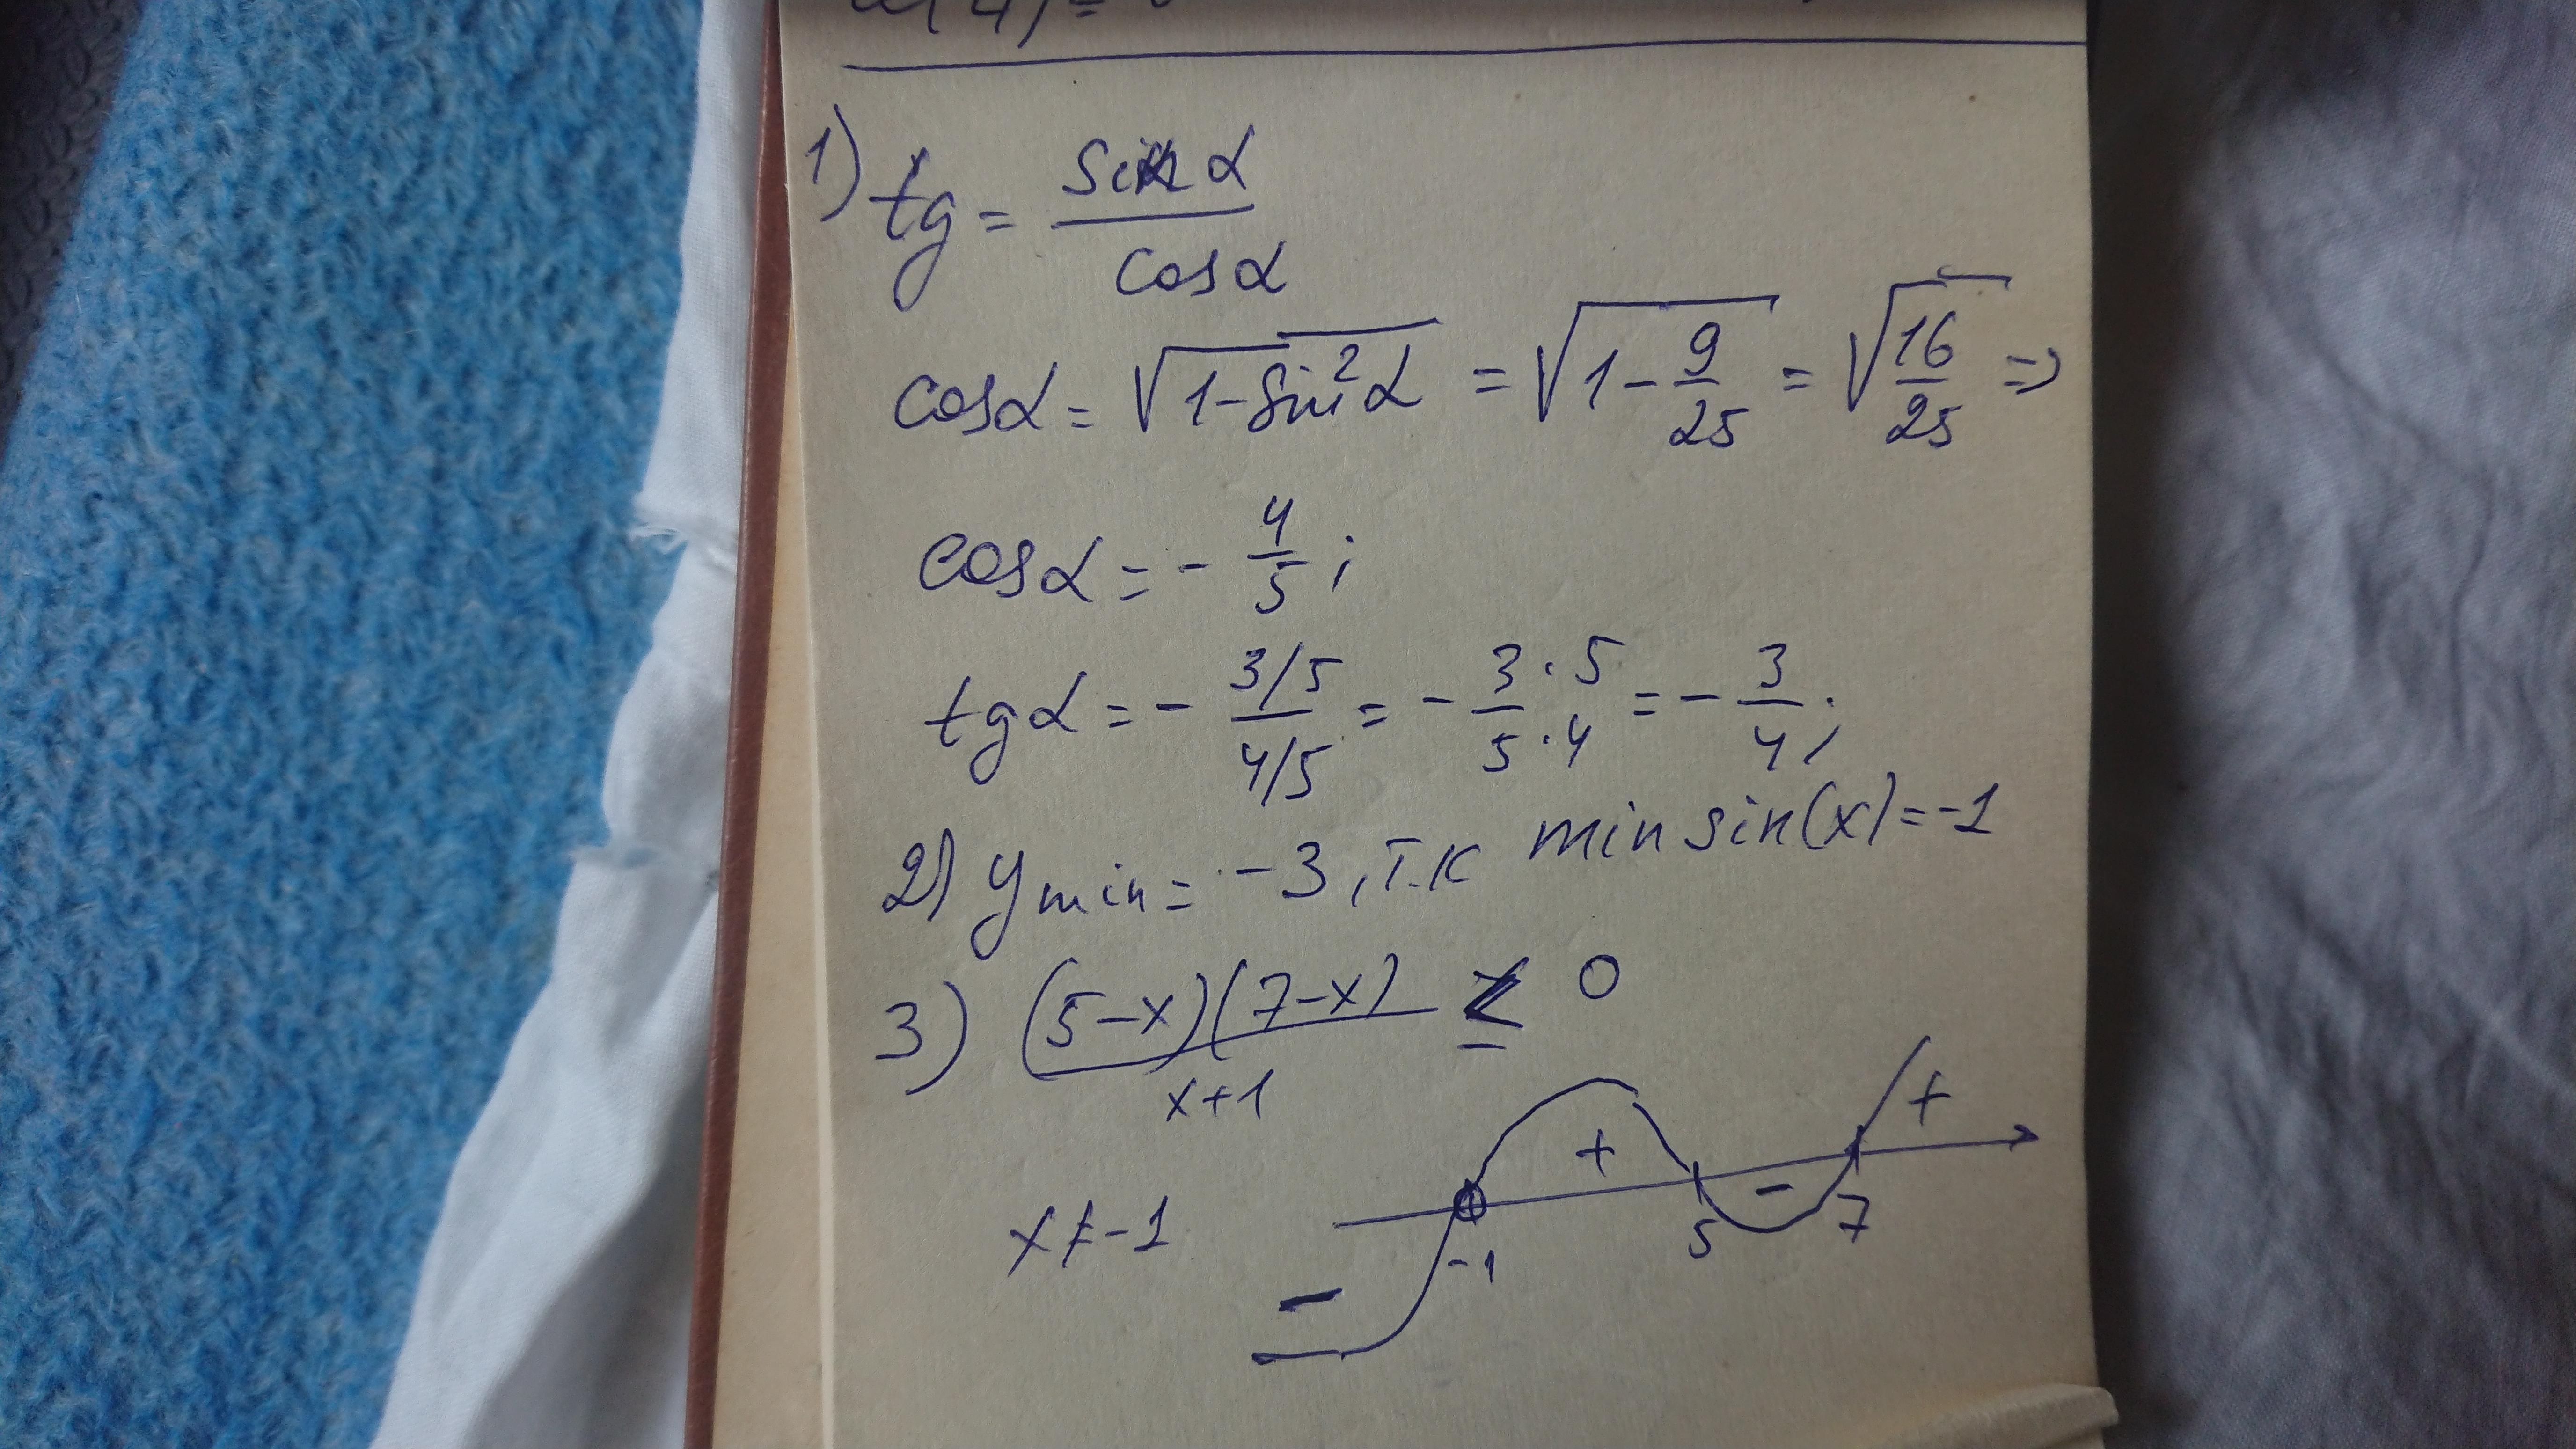 1) tg = sin α / cos α
cos α = √(1 - sin² α) = √(1 - 9/25) = √(16/25) =>
cos α = - 4/5 ;
tg α = - (3/5)/(4/5) = - (3 · 5)/(5 · 4) = - 3/4 ;
2) y min = -3, т.к min sin(x) = -1
3) (5-x)(7-x) / x+1 ≤ 0
x ≠ -1
+
+
-
-
-1 5 7